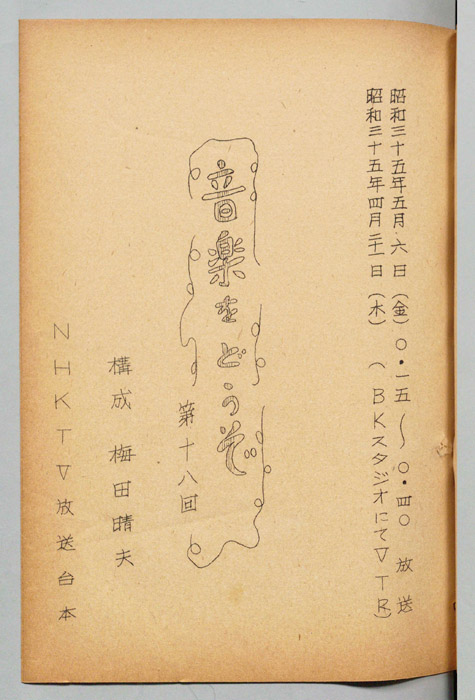 昭和三十五年五月六日（金）〇・一五〜〇・四〇 放送
昭和三十五年四月二十一日（木）（BKスタジオにてVTR）
音楽をどうぞ
第十八回
構成 梅田晴夫
NHKTV放送台本